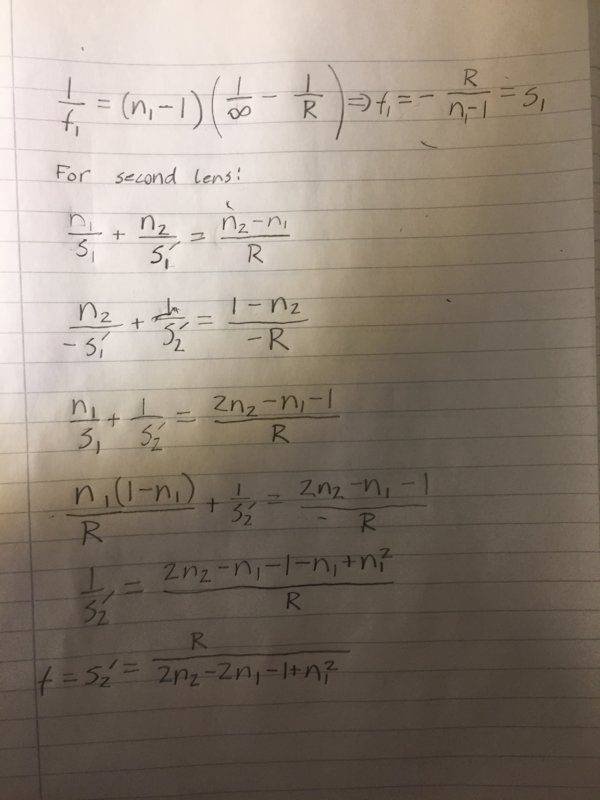 1/f₁ = (n₁-1) (1/∞ - 1/R) ⇒ f₁ = - R/(n₁-1) = S₁
For second lens:
n₁/S₁ + n₂/S₁' = (n₂-n₁)/R
n₂/-S₁' + 1/S₂' = (1-n₂)/-R
n₁/S₁ + 1/S₂' = (2n₂-n₁-1)/R
n₁(1-n₁)/R + 1/S₂' = (2n₂-n₁-1)/R
1/S₂' = (2n₂-n₁-1-n₁+n₁²)/R
f = S₂' = R/(2n₂-2n₁-1+n₁²)